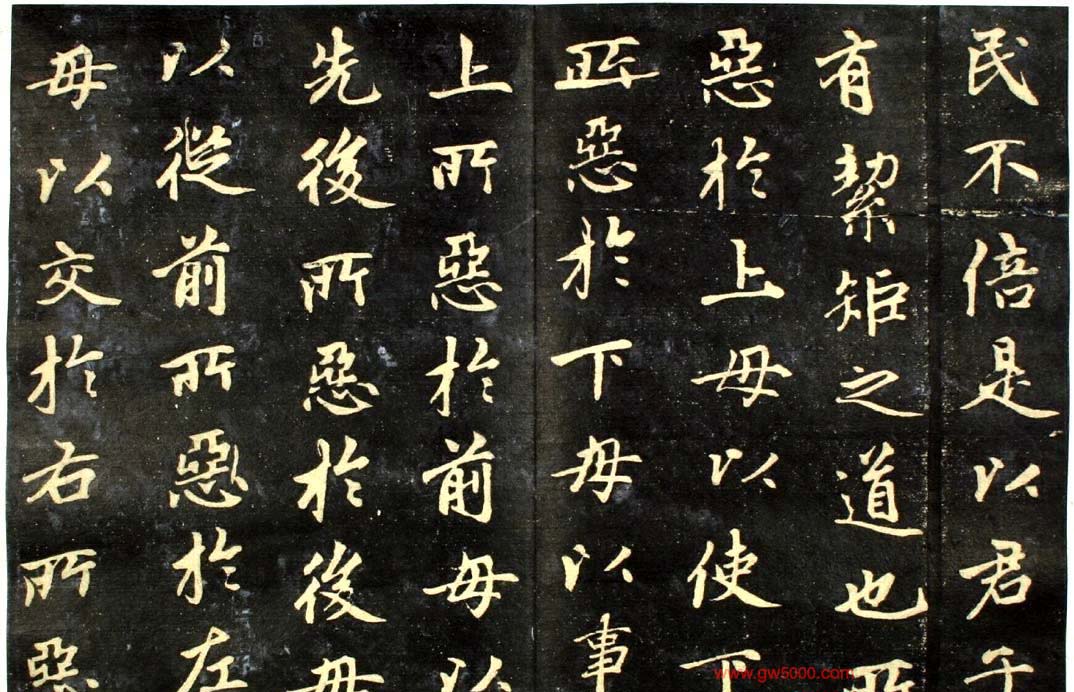 民不倍是以君子
有絜矩之道也所
惡於上毋以使下
所惡於下毋以事
上所惡於前毋以
先後所惡於後毋
以從前所惡於左
毋以交於右所惡
www.gw5000.com